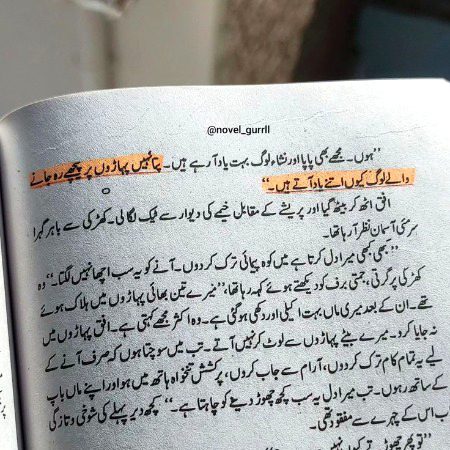 @novel_gurrll
"ہوں۔ مجھے بھی پاپا اور نشاء لوگ بہت یاد آ رہے ہیں۔ پتا نہیں پہاڑوں پر پیچھے رہ جانے
والے لوگ کیوں اتنے یاد آتے ہیں۔"
افق اٹھ کر بیٹھ گیا اور پریشے کے مقابل خیمے کی دیوار سے ٹیک لگا لی۔ کھڑکی سے باہر گہرا
سرمئی آسمان نظر آ رہا تھا۔
"کبھی کبھی میرا دل کرتا ہے میں کوہ پیمائی ترک کر دوں۔ آنے کو یہ سب اچھا نہیں لگتا۔" وہ
کھڑکی پر گرتی، جمتی برف کو دیکھتے ہوئے کہہ رہا تھا، "میرے تین بھائی پہاڑوں میں ہلاک ہوئے
تھے۔ ان کے بعد میری ماں بہت اکیلی اور دکھی ہو گئی ہے۔ وہ اکثر مجھے کہتی ہے۔ افق پہاڑوں میں
نہ جایا کرو۔ میرے بیٹے پہاڑوں سے لوٹ کر نہیں آتے۔ تب میں سوچتا ہوں کہ صرف آنے کے
لیے یہ تمام کام ترک کر دوں، آرام سے جاب کروں، پرکشش تنخواہ ہاتھ میں ہو اور اپنے ماں باپ
کے ساتھ رہوں۔ تب میرا دل یہ سب کچھ چھوڑ دینے کو چاہتا ہے۔" کچھ دیر پہلے کی شوخی و تازگی
اب اس کے چہرے سے مفقود تھی۔
"تو پھر چھوڑتے کیوں نہیں